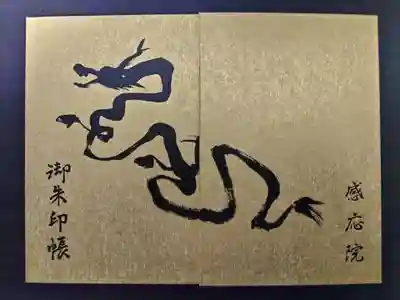 感応院
御朱印帳